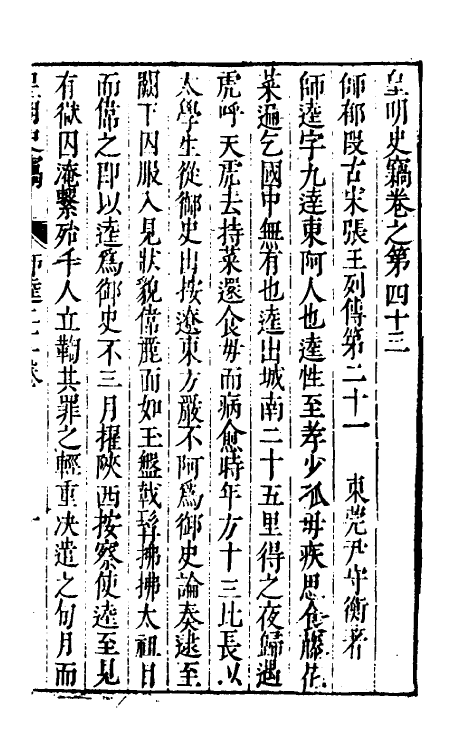 皇明史竊卷之第四十三
師郁段古宋張王列傳第二十一　東莞尹守衡著
師逵字九逵東阿人也逵性至孝少孤毋疾思食藤花
菜遍乞國中無有也逵出城南二十五里得之夜歸遇
虎呼天虎去持菜還食毋而病愈時年方十三比長以
太學生從御史出按遼東方嚴不阿為御史論奏逮至
闕下因服入見狀貌偉麗而如玉盤戟髯拂拂太祖目
而偉之即以逵為御史不三月擢陝西按察使逵至見
有獄囚淹繫殆千人立鞫其罪之輕重决遣之旬月而
皇明史竊
師逵二十一卷
一